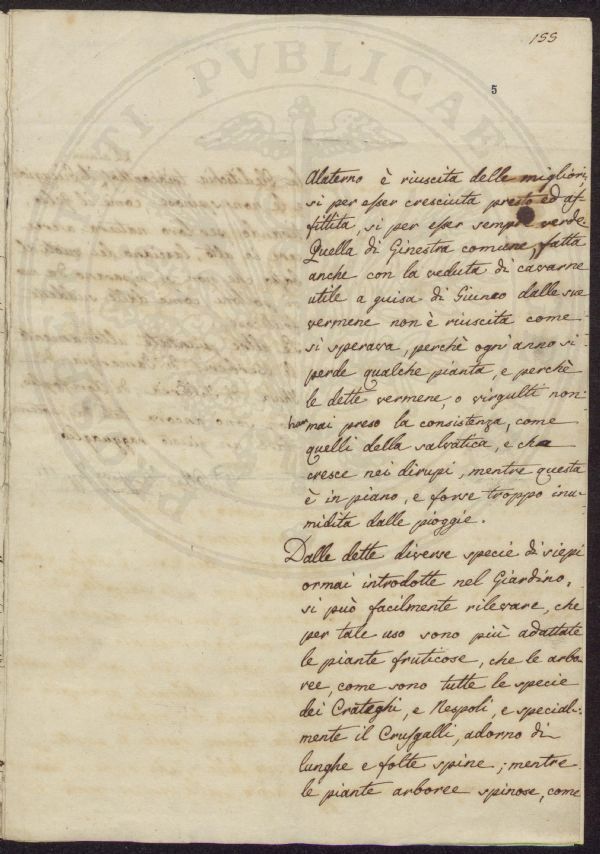 155
5
Alaterno è riuscita delle migliori,
si per esser cresciuta presto ed af-
fittita, si per esser sempre verde.
Quella di Ginestra comune, fatta
anche con la veduta di cavarne
utile a guisa di Giunco dalle sue
vermene non è riuscita come
si sperava, perchè ogn'anno si
perde qualche pianta, e perchè
le dette vermene, o virgulti non
han mai preso la consistenza, come
quelli della salvatica, e che
cresce nei dirupi, mentre questa
è in piano, e forse troppo inu-
midita dalle pioggie.
Dalle dette diverse specie di siepi
ormai introdotte nel Giardino,
si può facilmente rilevare, che
per tale uso sono più adattate
le piante fruticose, che le arbo-
ree, come sono tutte le specie
dei Crateghi, e Nespoli, e special-
mente il Crusgalli, adorno di
lunghe e folte spine; mentre
le piante arboree spinose, come